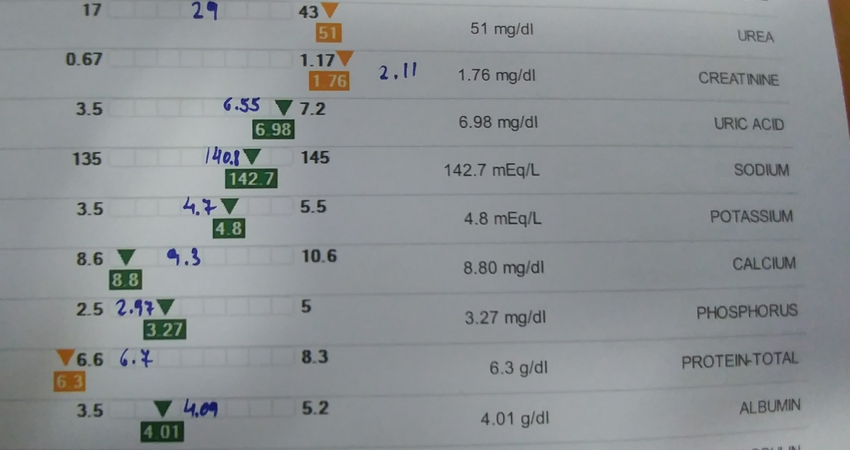 17 29 43 51 51 mg/dl UREA
0.67 1.17 1.76 2.11 1.76 mg/dl CREATININE
3.5 6.55 7.2 6.98 6.98 mg/dl URIC ACID
135 140.8 145 142.7 142.7 mEq/L SODIUM
3.5 4.7 5.5 4.8 4.8 mEq/L POTASSIUM
8.6 9.3 10.6 8.8 8.80 mg/dl CALCIUM
2.5 2.97 5 3.27 3.27 mg/dl PHOSPHORUS
6.6 6.7 8.3 6.3 6.3 g/dl PROTEIN-TOTAL
3.5 4.09 5.2 4.01 4.01 g/dl ALBUMIN